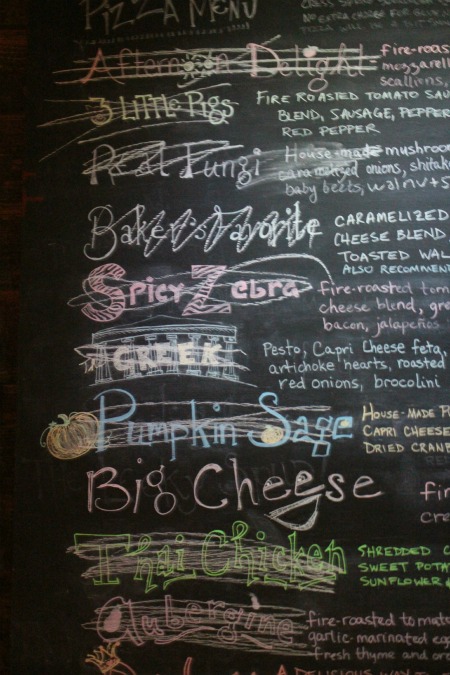 PIZZA MENU
NO EXTRA CHARGE FOR
Afternoon Delight
fire-roas
mozzarell
scallions,
3 LiTTLe PigS
FIRE ROASTED TOMATO SAU
BLEND, SAUSAGE, PEPPER
RED PEPPER
Real Fungi
House-made mushroom
caramelized onions, shitake
baby beets, walnuts
Baker's Favorite
CARAMELIZED
CHEESE BLEND,
TOASTED WAL
ALSO RECOMMEN
Spicy Zebra
fire-roasted tom
cheese blend, gre
bacon, jalapeños
GREEK
Pesto, Capri Cheese feta,
artichoke hearts, roasted
red onions, brocolini
Pumpkin Sage
HOUSE-MADE P
CAPRI CHEESE
DRIED CRANB
Big Cheese
fir
cre
Thai Chicken
SHREDDED C
SWEET POTA
SUNFLOWER
Aubergine
fire-roasted tomato
garlic-marinated egg
fresh thyme and ore
A DELICIOUS WAY TO